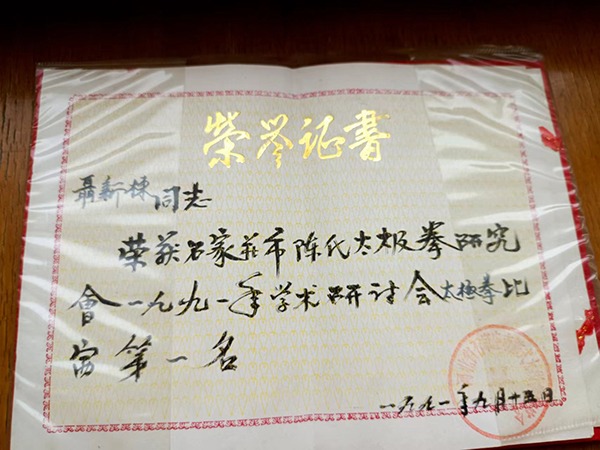 荣誉证书
聂新栋同志
荣获石家庄市陈氏太极拳研究
會一九九一年学术研讨会太极拳比
赛第一名
一九九一年九月十五日